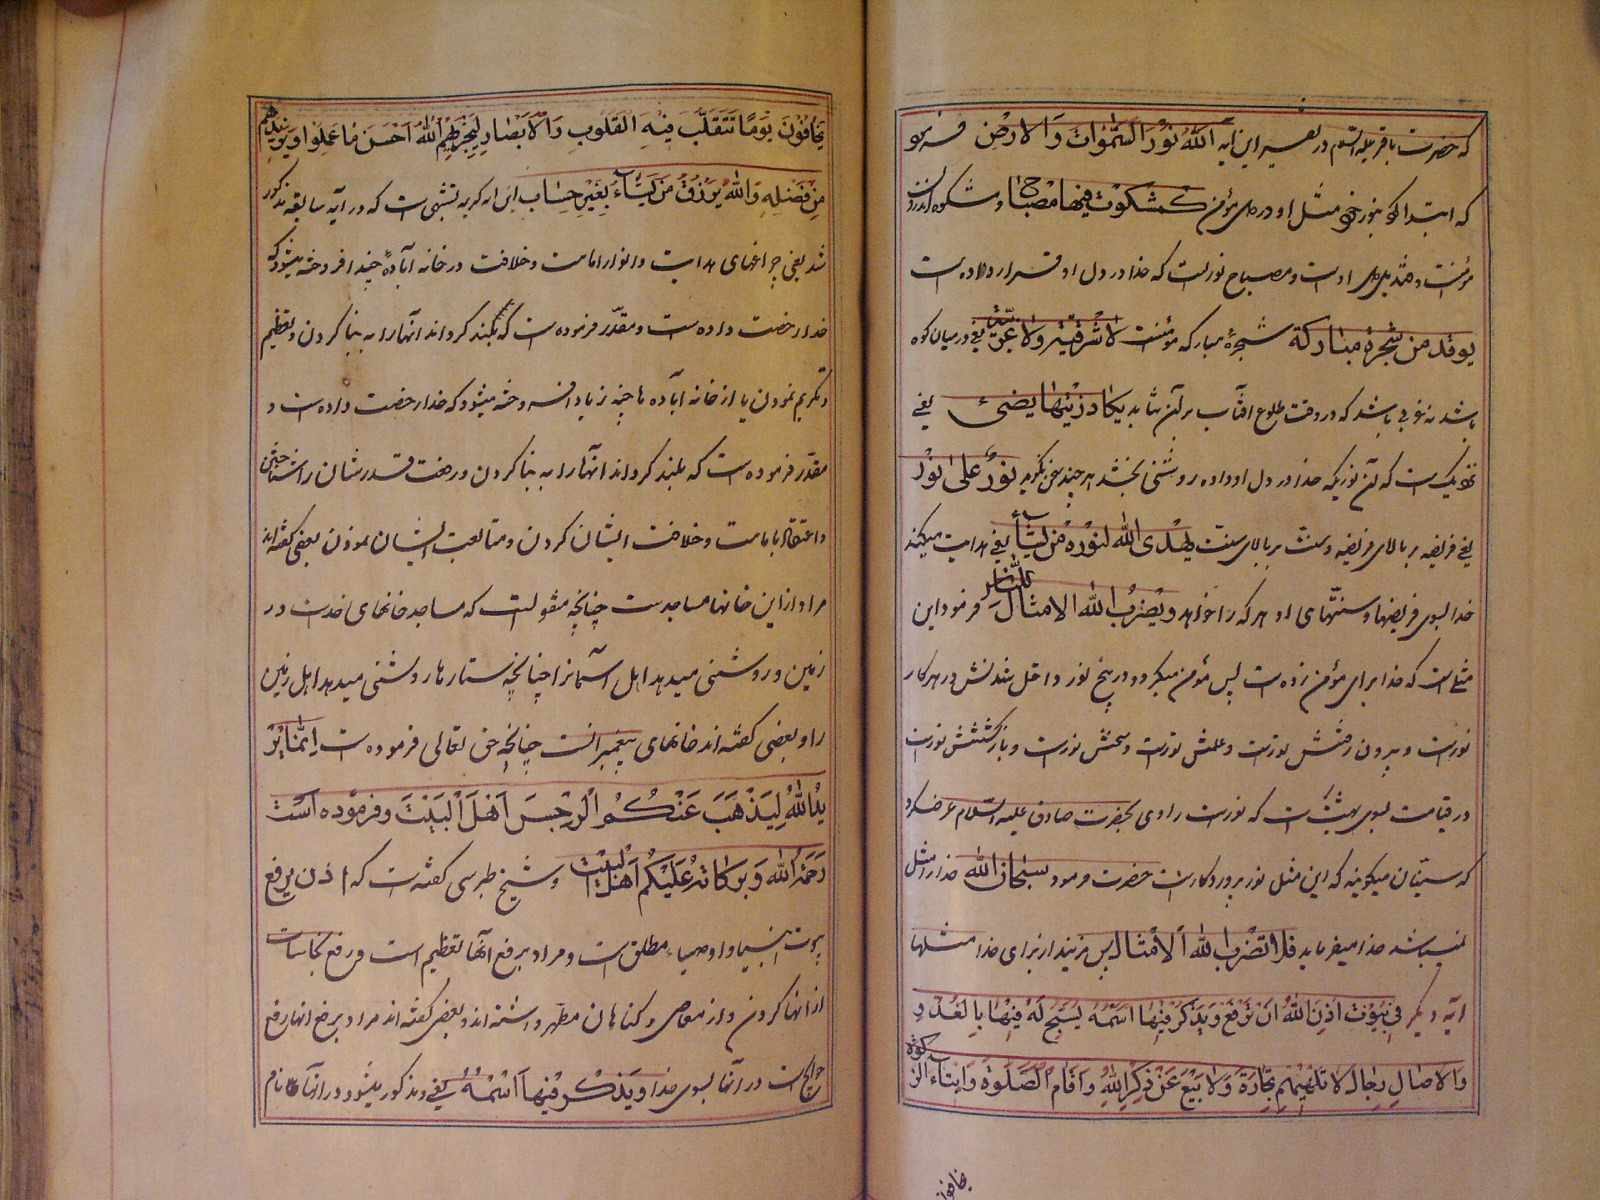 که حضرت باقر علیه السلام در تفسیر این آیه اَللّهُ نُورُ السَّمٰوَاتِ وَالْارَضِ فرمود
که ابتدا کرد بنور خود مثل او در دل مؤمن كَمِشْكٰوةٍ فِيهٰا مِصْبٰاحٌ و مشکوة اندرون
مؤمنست و قندیل دل اوست و مصباح نوریست که خدا در دل او قرار داده است
يُوقَدُ مِن شَجَرَةٍ مُبٰارَكَةٍ شجرهٔ مبارکه مؤمنست لاٰ شَرْقِيَّةٍ وَلاٰ غَرْبِيَّةٍ یعنی در میان کوه
باشد نه غربی باشد که در وقت طلوع آفتاب بر آن نتابد يَكٰادُ زَيْتُهٰا يُضِيءُ یعنی
نزدیک است که آن نوریکه خدا در دل او داده روشنی بخشد هر چند سخن نگوید نُورٌ عَلىٰ نُورٍ
یعنی فریضه بر بالای فریضه و سنت بر بالای سنت يَهْدِى اللّهُ لِنُورِهِ مَنْ يَشٰآءُ یعنی هدایت میکند
خدا بسوی فریضها و سنتهای او هر که را خواهد وَيَضْرِبُ اللّهُ الْاَمْثٰالَ لِلنّٰاسِ فرمود این
مثلی است که خدا برای مؤمن زده است پس مؤمن میگردد در پنج نور داخل شدنش در هر کار
نورست و بیرون رفتنش نورست و علمش نورست و سخنش نورست و بازگشتنش نورست
در قیامت بسوی بهشت است که نورست راوی بحضرت صادق علیه السلام عرض کرد
که سنیان میگویند که این مثل نور پروردگارست حضرت فرمود سُبْحٰانَ اللّهِ خدا را مثل
نمیباشد خدا میفرماید فَلاٰ تَضْرِبُوا لِلّهِ الْاَمْثٰالَ پس مزنید از برای خدا مثلها
آیه دیگر فِي بُيُوتٍ اَذِنَ اللّهُ اَنْ تُرْفَعَ وَيُذْكَرَ فِيهٰا اسْمُهُ يُسَبِّحُ لَهُ فِيهٰا بِالْغُدُوِّ
وَالْاٰصٰالِ رِجٰالٌ لاٰ تُلْهِيهِمْ تِجٰارَةٌ وَلاٰ بَيْعٌ عَنْ ذِكْرِ اللّهِ وَاِقٰامِ الصَّلوٰةِ وَاِيتٰآءِ الزَّكوٰةِ
یخافون
يَخٰافُونَ يَوْمًا تَتَقَلَّبُ فِيهِ الْقُلُوبُ وَالْاَبْصٰارُ لِيَجْزِيَهُمُ اللّهُ اَحْسَنَ مٰا عَمِلُوا وَيَزِيدَهُمْ
مِنْ فَضْلِهِ وَاللّهُ يَرْزُقُ مَنْ يَشٰآءُ بِغَيْرِ حِسٰابٍ این آیه کریمه تشبیهی است که در آیه سابقه مذکور
شد یعنی چراغهای هدایت و انوار امامت و خلافت در خانه آبادهٔ چند افروخته میشود که
خدا رخصت داده است و مقدر فرموده است که بلند گردانند آنها را به بنا کردن و تعظیم
و تکریم نمودن یا از خانه آبادهها چند زیاد افروخته میشود که خدا رخصت داده است و
مقدر فرموده است که بلند گردانند آنها را به بنا کردن و رفعت قدر شان را شناختن
و اعتقاد بامامت و خلافت ایشان کردن و متابعت ایشان نمودن بعضی گفته اند
مراد از این خانها مساجدست چنانچه منقولست که مساجد خانهای خداست در
زمین و روشنی میدهد اهل آسمانرا چنانچه ستارها روشنی میدهد اهل زمین
را و بعضی گفته اند خانهای پیغمبرانست چنانچه حق تعالی فرموده است اِنَّمٰا يُرِ
يدُ اللّهُ لِيُذْهِبَ عَنْكُمُ الرِّجْسَ اَهْلَ الْبَيْتِ وفرموده است
رَحْمَةُ اللّهِ وَبَرَكٰاتُهُ عَلَيْكُمْ اَهْلَ الْبَيْتِ و شیخ طبرسی گفته است که اذن برفع
بیوت انبیا و اوصیاء مطلق است و مراد برفع آنها تعظیم است و رفع نجاسات
از آنها کردن و از معاصی و گناهان مطهر داشته اند و بعضی گفته اند مراد برفع آنها رفع
حوائج است در آنها بسوی خدا وَيُذْكَرَ فِيهٰا اسْمُهُ یعنی و مذکور میشود در آنها نام